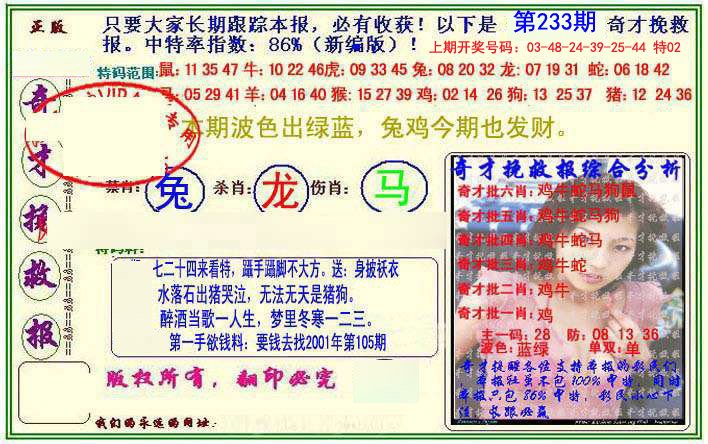 正版
只要大家长期跟踪本报，必有收获！以下是 第233期 奇才挽救
报。中特率指数：86%（新编版）！ 上期开奖号码：03-48-24-39-25-44 特02
特码范围：鼠: 11 35 47 牛: 10 22 46虎: 09 33 45 兔: 08 20 32 龙: 07 19 31 蛇: 06 18 42
05 29 41 羊: 04 16 40 猴: 15 27 39 鸡: 02 14 26 狗: 13 25 37 猪: 12 24 36
本期波色出绿蓝，兔鸡今期也发财。
奇才挽救报
专用
禁肖: 兔 杀肖: 龙 伤肖: 马
七二十四来看特，蹑手蹑脚不大方。送：身披袄衣
水落石出猪哭泣，无法无天是猪狗。
醉酒当歌一人生，梦里冬寒一二三。
第一手欲钱料：要钱去找2001年第105期
版权所有，翻印必究
我们的永远的网址：
奇才挽救报综合分析
奇才批六肖: 鸡牛蛇马狗鼠
奇才批五肖: 鸡牛蛇马狗
奇才批四肖: 鸡牛蛇马
奇才批三肖: 鸡牛蛇
奇才批二肖: 鸡牛
奇才批一肖: 鸡
主一码: 28 防: 08 13 36
波色: 蓝绿 单双: 单
奇才提醒各位支持本报的彩民们
，本报社虽不包100%中特，同时
本报只包86%中特，彩民小心下
注，长跟必赢